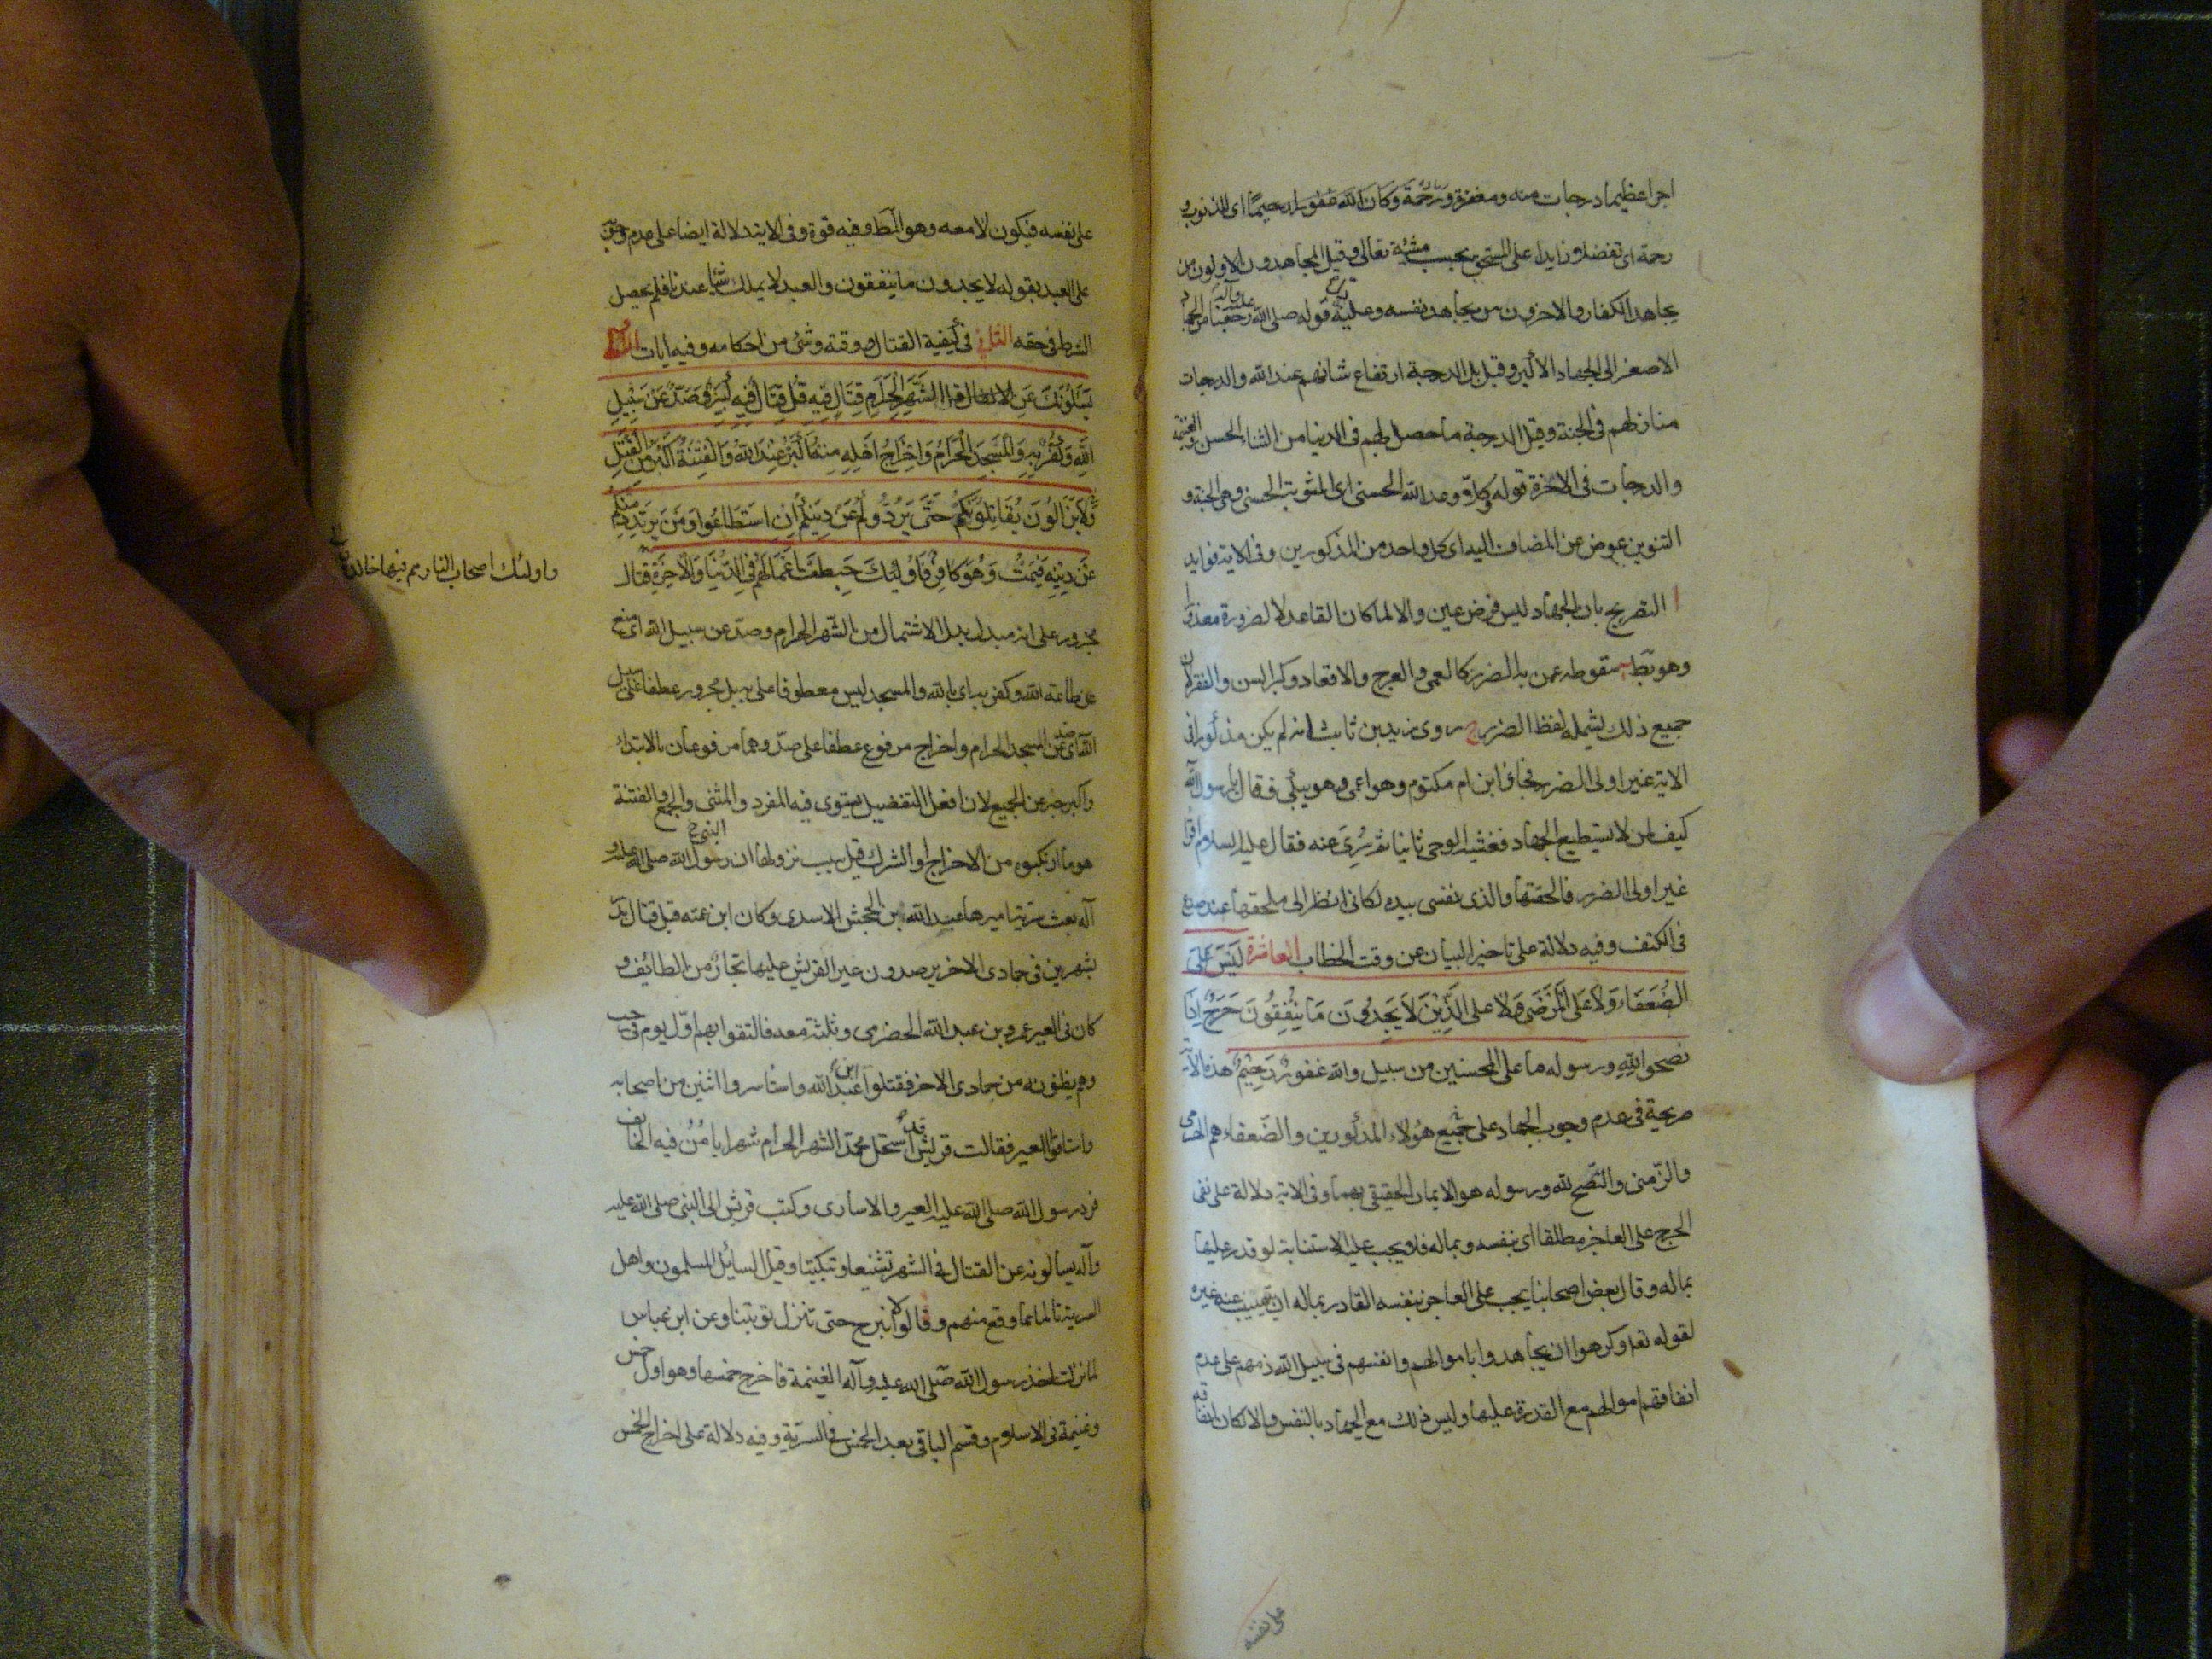 اجرا عظيما درجات منه ومغفرة ورحمة وكان الله غفورا رحيما اى للذنوب و
رحمة اى تفضلا وزايدا على المستحق بحسب مشية تعالى وقيل المجاهدون الاولون من
يجاهد الكفار والاخرون من يجاهد نفسه وعليه قوله صلى الله عليه وآله رجعنا من الجهاد
الاصغر الى الجهاد الاكبر وقيل بل الدرجة ارتفاع شانهم عند الله والدرجات
منازلهم فى الجنة وقيل الدرجة ما حصل لهم فى الدنيا من الثناء الحسن والغنيمة
والدرجات فى الاخرة قوله وكلا وعد الله الحسنى اى المثوبة الحسنى وهى الجنة و
التنوين عوض عن المضاف اليه اى كل واحد من المذكورين وفى الاية فوايد
ا التصريح بان الجهاد ليس فرض عين والا لما كان القاعد لا لضرورة معذورا
وهو بط ب سقوطه عمن به الضرر كالعمى والعرج والاقعاد وكبر السن والفقر لان
جميع ذلك يشمله لفظ الضرر ج روى زيد بن ثابت انه لم يكن مذكورا فى
الاية غير اولى الضرر فجاء ابن ام مكتوم وهو اعمى وهو يبكى فقال يا رسول الله
كيف لمن لا يستطيع الجهاد فغشيه الوحى ثانيا ثم سرى عنه فقال عليه السلام اقرا
غير اولى الضرر فالحقتها والذى نفسى بيده لكانى انظر الى ملحقها عند صدع
فى الكتف وفيه دلالة على تاخير البيان عن وقت الخطاب العاشرة ليس على
الضعفاء ولا على المرضى ولا على الذين لا يجدون ما ينفقون حرج اذا
نصحوا لله ورسوله ما على المحسنين من سبيل والله غفور رحيم هذه الاية
صريحة فى عدم وجوب الجهاد على جميع هؤلاء المذكورين والضعفاء هم الهرمى
والزمنى والنصح لله ورسوله هو الايمان الحقيقى بهما وفى الاية دلالة على نفى
الحرج على العاجز مطلقا اى بنفسه وبماله فلا يجب عليه الاستنابة لو قدر عليها
بماله وقال بعض اصحابنا يجب على العاجز بنفسه القادر بماله ان يستنيب عنه غيره
لقوله تعالى وكرهوا ان يجاهدوا باموالهم وانفسهم فى سبيل الله ذمهم على عدم
انفاقهم اموالهم مع القدرة عليها وليس ذلك مع الجهاد بالنفس والا لكان انفاقه
على نفسه
على نفسه فيكون لا معه وهو المط وفيه قوة وفى الاية دلالة ايضا على عدم وجوبه
على العبد بقوله لا يجدون ما ينفقون والعبد لا يملك شيئا عندنا فلم يحصل
الشرط فى حقه الثانى فى كيفية القتال ووقته وشئ من احكامه وفيه ايات الاولى
يسئلونك عن الشهر الحرام قتال فيه قل قتال فيه كبير وصد عن سبيل
الله وكفر به والمسجد الحرام واخراج اهله منه اكبر عند الله والفتنة اكبر من القتل
ولا يزالون يقاتلونكم حتى يردوكم عن دينكم ان استطاعوا ومن يرتدد منكم
عن دينه فيمت وهو كافر فاولئك حبطت اعمالهم فى الدنيا والاخرة قتال
واولئك اصحاب النار هم فيها خالدون
مجرور على انه مبدل بدل الاشتمال من الشهر الحرام وصد عن سبيل الله اى منع
عن طاعة الله وكفر به اى بالله والمسجد ليس معطوفا على به بل مجرور عطفا على سبيل
الله اى صد عن المسجد الحرام واخراج مرفوع عطفا على صد وهما مرفوعان بالابتداء
واكبر خبر عن الجميع لان افعل التفضيل يستوى فيه المفرد والمثنى والجمع والفتنة
هو ما ارتكبوه من الاخراج او الشرك قيل سبب نزولها ان رسول الله صلى الله عليه و
آله بعث سرية اميرها عبد الله بن الجحش الاسدى وكان ابن عمته قبل قتال بدر
بشهرين فى جمادى الاخر يرصدون عير القريش عليها تجار من الطائف و
كان فى العير عمرو بن عبد الله الحضرمى وثلثة معه فالتقوا بهم اول يوم فى رجب
وهم يظنونه من جمادى الاخر فقتلوا ابن عبد الله واستاسروا اثنين من اصحابه
واستاقوا العير فقالت قريش قد استحل محمد الشهر الحرام شهرا يامن فيه الخائف
فرد رسول الله صلى الله عليه العير والاسارى وكتب قريش الى النبى صلى الله عليه
وآله يسالونه عن القتال فى الشهر تشنيعا وتبكيتا وقيل السائل المسلمون واهل
السرية تالما مما وقع منهم وقالوا لا نبرح حتى تنزل توبتنا وعن ابن عباس
لما نزلت اخذ رسول الله صلى الله عليه وآله الغنيمة فاخرج خمسها وهو اول خمس
وغنيمة فى الاسلام وقسم الباقى بعد الخمس فى السرية وفيه دلالة على اخراج الخمس